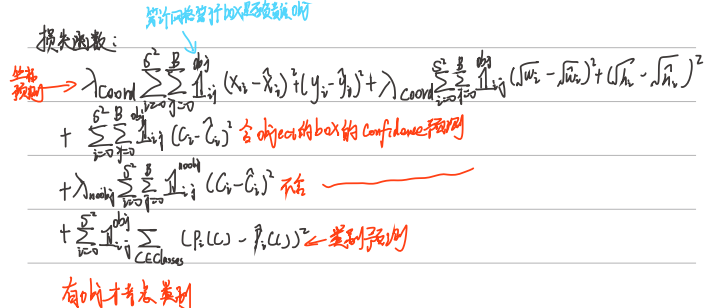 第i个网格第j个box是否负责该obj
损失函数:
坐标预测 → λ_coord Σ_{i=0}^{S²} Σ_{j=0}^{B} 𝟙_{ij}^{obj} (x_i - x̂_i)² + (y_i - ŷ_i)² + λ_coord Σ_{i=0}^{S²} Σ_{j=0}^{B} 𝟙_{ij}^{obj} (√w_i - √ŵ_i)² + (√h_i - √ĥ_i)²
+ Σ_{i=0}^{S²} Σ_{j=0}^{B} 𝟙_{ij}^{obj} (C_i - Ĉ_i)² 含object的box的confidence预测
+ λ_noobj Σ_{i=0}^{S²} Σ_{j=0}^{B} 𝟙_{ij}^{noobj} (C_i - Ĉ_i)² 不含
+ Σ_{i=0}^{S²} 𝟙_{ij}^{obj} Σ_{c∈classes} (P_i(c) - P̂_i(c))² ← 类别预测
有obj才考虑类别